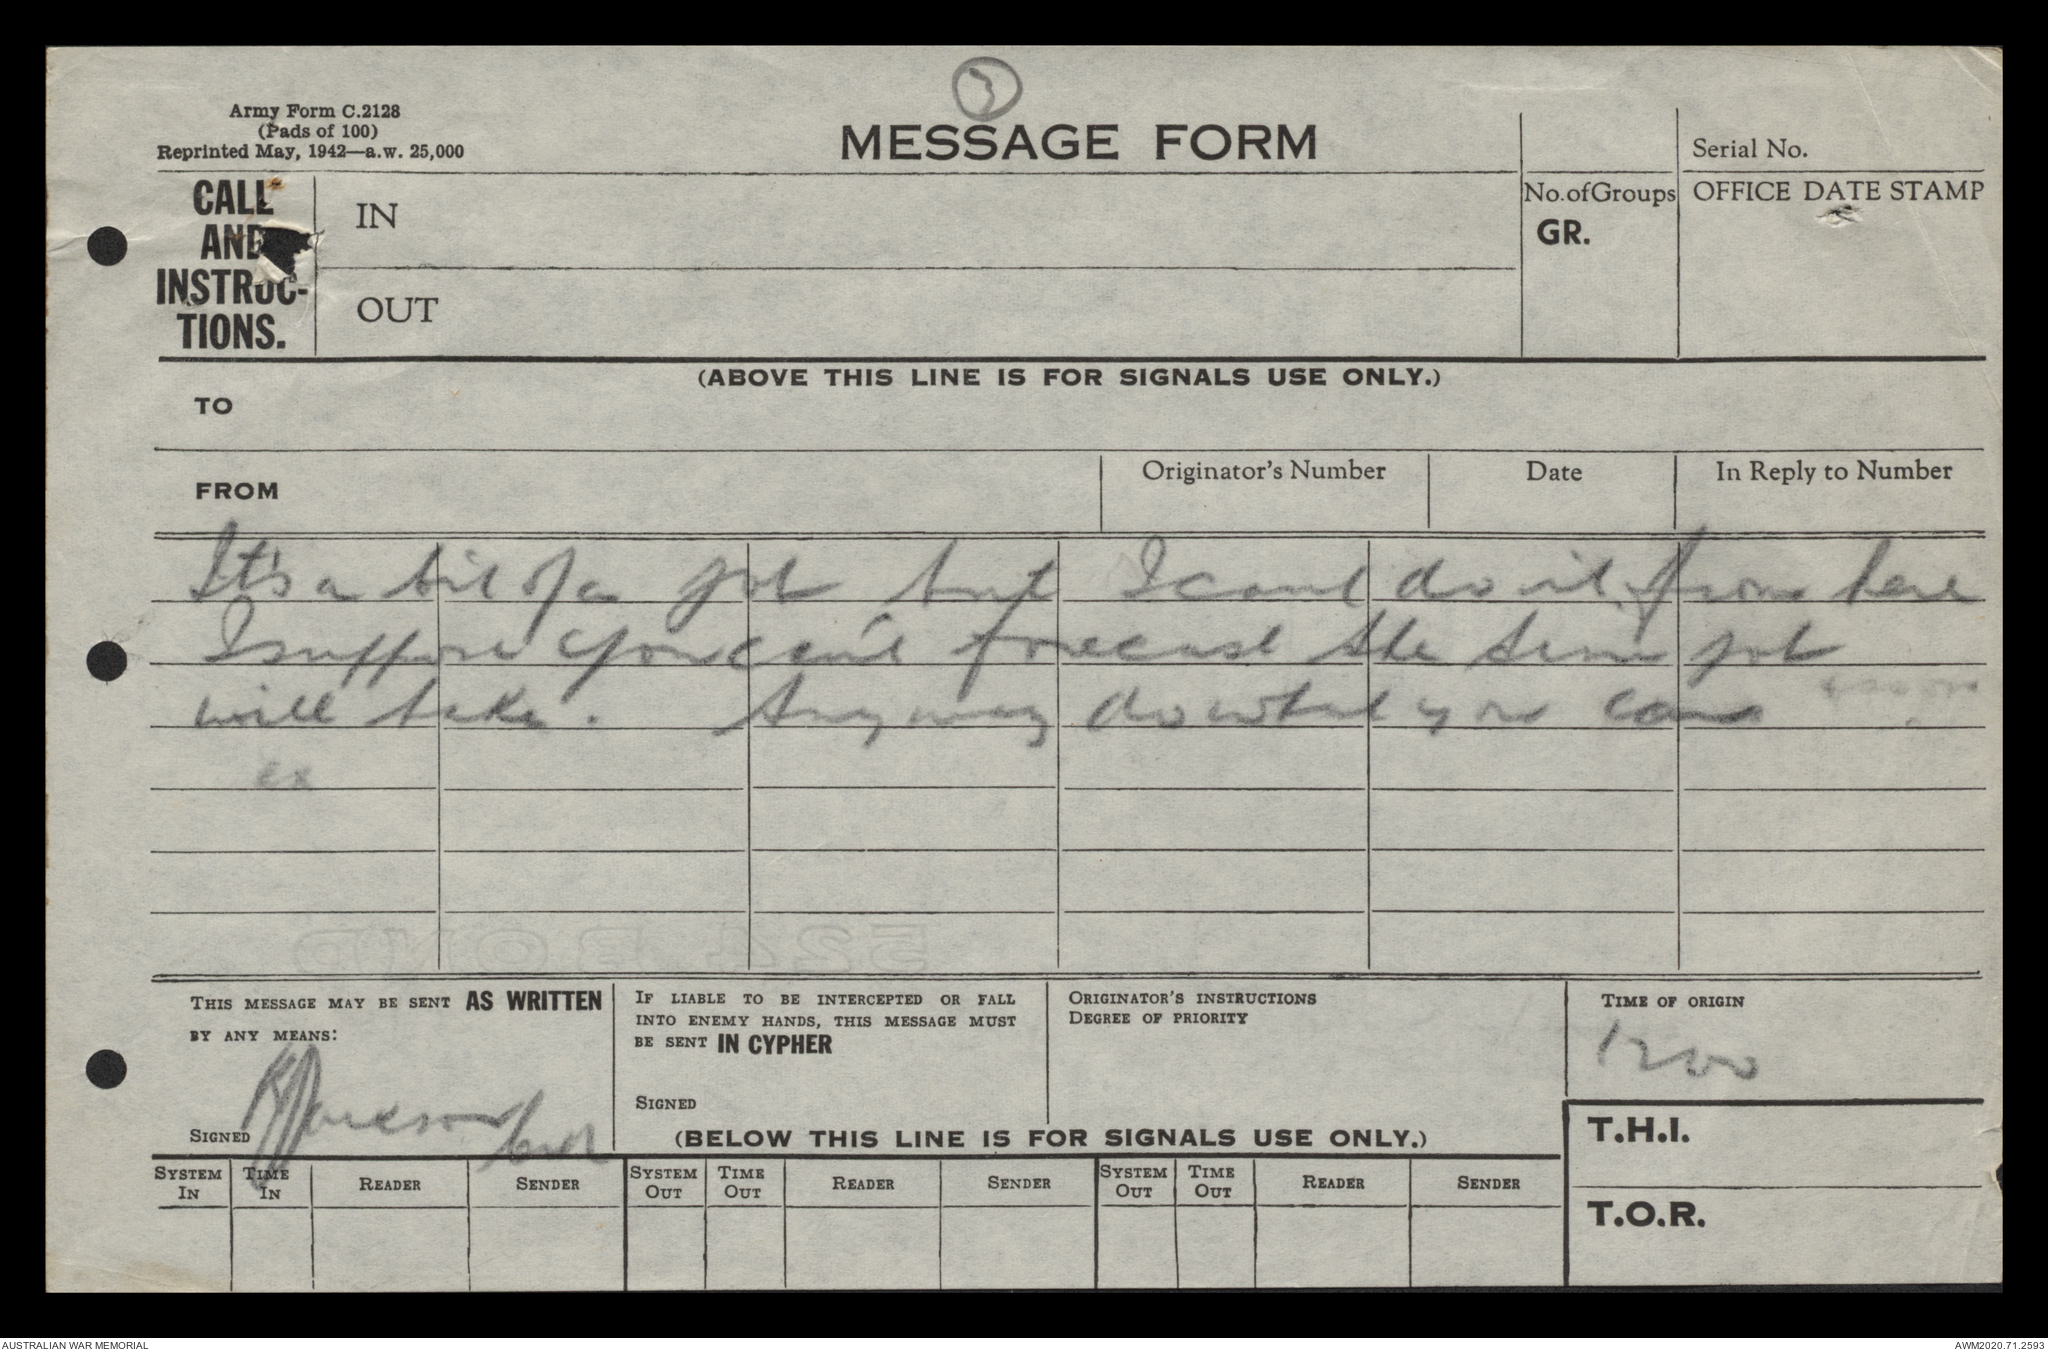 3
Army Form C.2128
(Pads of 100)
Reprinted May, 1942—a.w. 25,000
MESSAGE FORM
Serial No.
CALL
AND
INSTRUC-
TIONS.
IN
OUT
No. of Groups
GR.
OFFICE DATE STAMP
(ABOVE THIS LINE IS FOR SIGNALS USE ONLY.)
TO
FROM
Originator's Number
Date
In Reply to Number
It's a bit of a job but I cant do it from here
I suppose you can't forecast the time job
will take. Anyway do what you can
ex
524 BOND
THIS MESSAGE MAY BE SENT AS WRITTEN
BY ANY MEANS:
SIGNED
IF LIABLE TO BE INTERCEPTED OR FALL
INTO ENEMY HANDS, THIS MESSAGE MUST
BE SENT IN CYPHER
SIGNED
ORIGINATOR'S INSTRUCTIONS
DEGREE OF PRIORITY
TIME OF ORIGIN
1200
(BELOW THIS LINE IS FOR SIGNALS USE ONLY.)
T.H.I.
T.O.R.
SYSTEM IN TIME IN READER SENDER SYSTEM OUT TIME OUT READER SENDER SYSTEM OUT TIME OUT READER SENDER
AUSTRALIAN WAR MEMORIAL
AWM2020.71.2593